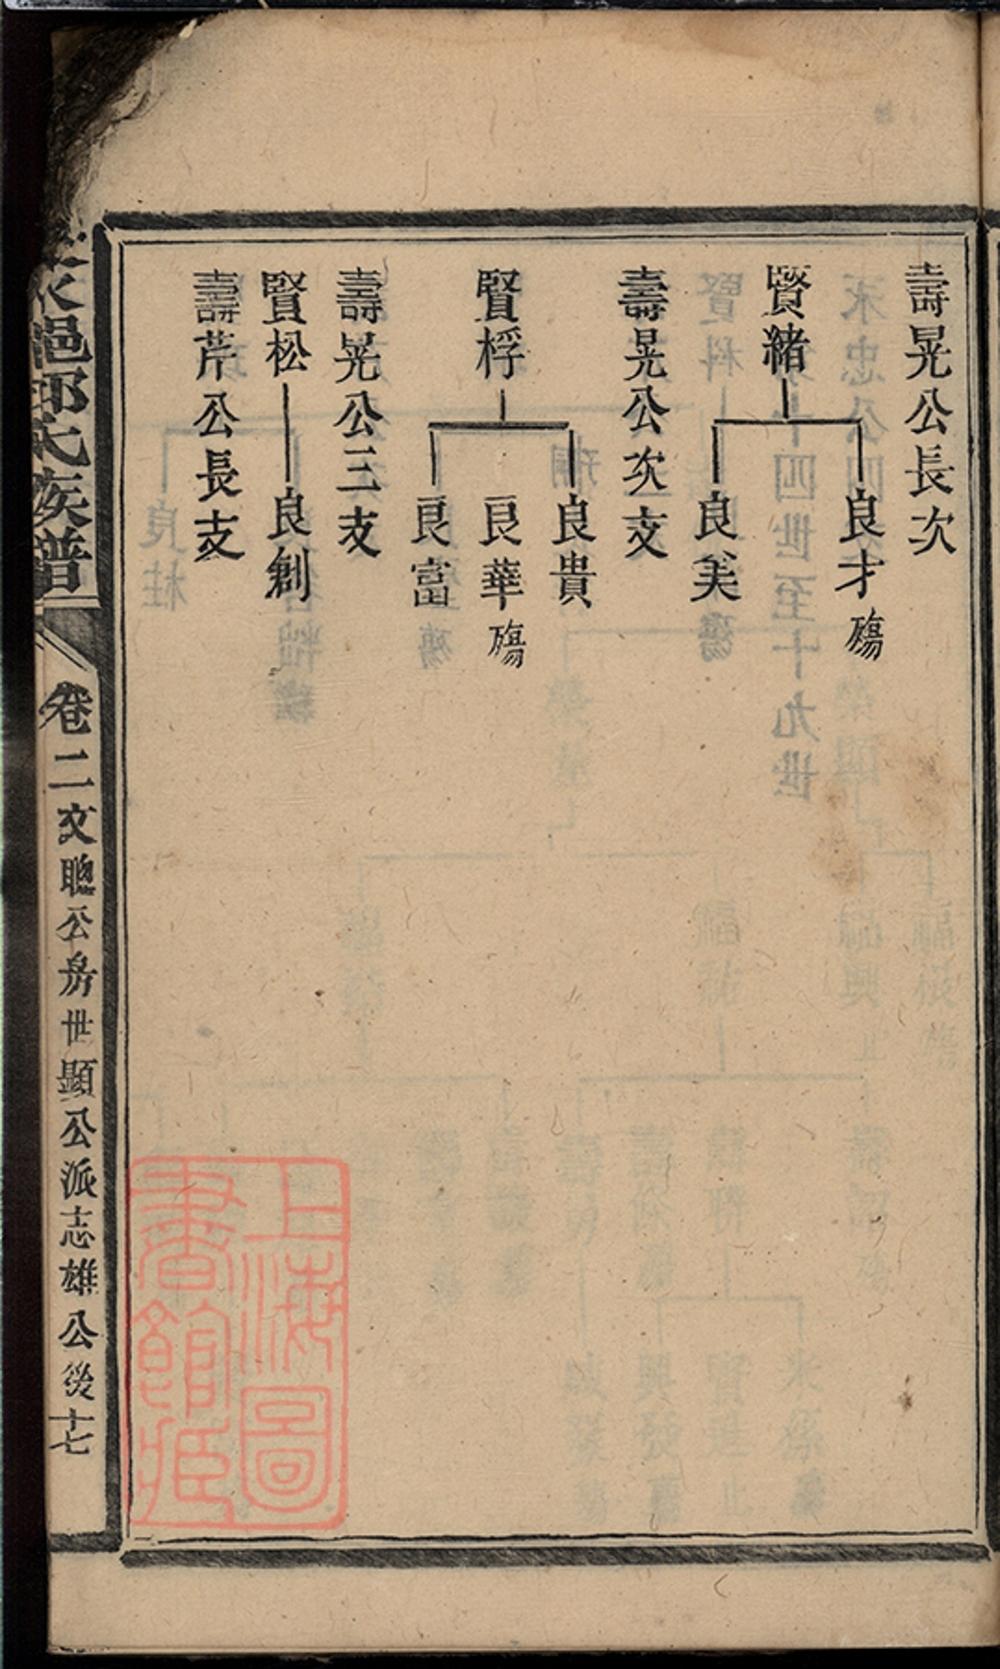 壽晃公長次
賢緒
良才殤
良美
壽晃公次支
賢桴
良貴
良華殤
良富
壽晃公三支
賢松
良創
壽芹公長支
邑 氏族譜
卷二文聰公房世顯公派志雄公後十七
上海圖
書館藏